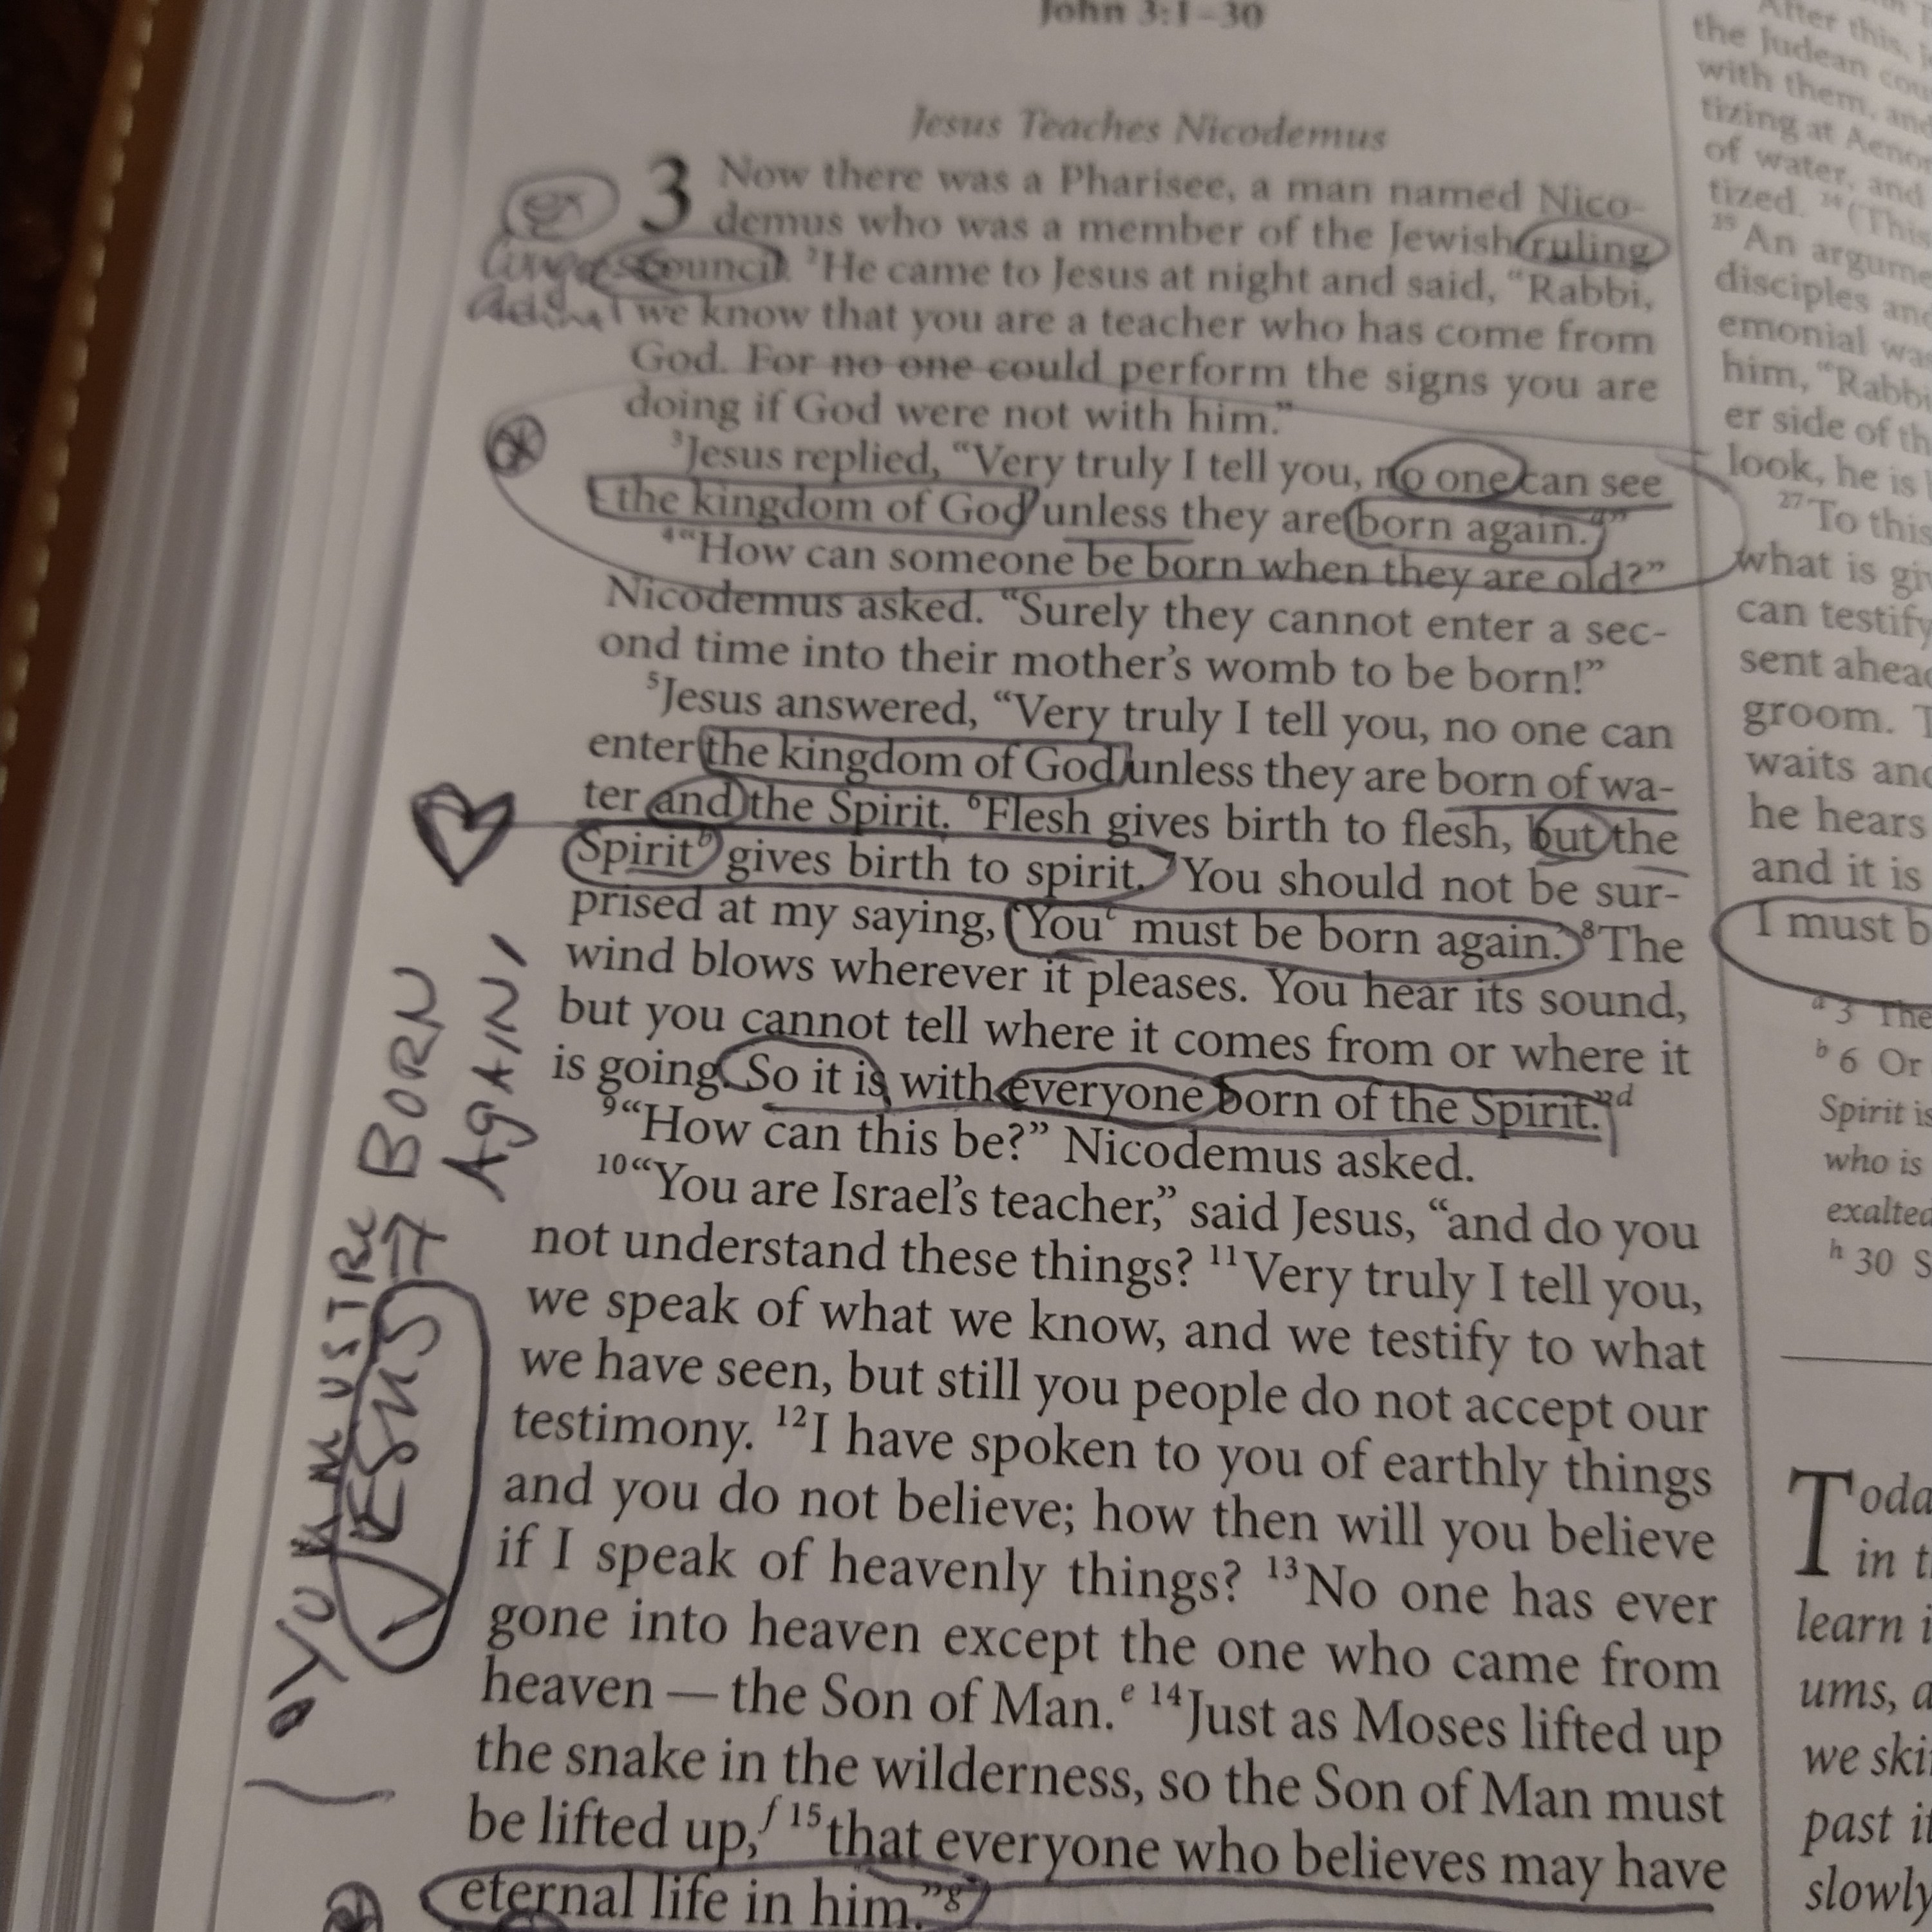 John 3:1–30
Jesus Teaches Nicodemus
3 Now there was a Pharisee, a man named Nico-
demus who was a member of the Jewish ruling
council. ²He came to Jesus at night and said, “Rabbi,
we know that you are a teacher who has come from
God. For no one could perform the signs you are
doing if God were not with him.”
³Jesus replied, “Very truly I tell you, no one can see
the kingdom of God unless they are born again.ᵃ”
⁴“How can someone be born when they are old?”
Nicodemus asked. “Surely they cannot enter a sec-
ond time into their mother’s womb to be born!”
⁵Jesus answered, “Very truly I tell you, no one can
enter the kingdom of God unless they are born of wa-
ter and the Spirit. ⁶Flesh gives birth to flesh, but the
Spiritᵇ gives birth to spirit. ⁷You should not be sur-
prised at my saying, ‘Youᶜ must be born again.’ ⁸The
wind blows wherever it pleases. You hear its sound,
but you cannot tell where it comes from or where it
is going. So it is with everyone born of the Spirit.”ᵈ
⁹“How can this be?” Nicodemus asked.
¹⁰“You are Israel’s teacher,” said Jesus, “and do you
not understand these things? ¹¹Very truly I tell you,
we speak of what we know, and we testify to what
we have seen, but still you people do not accept our
testimony. ¹²I have spoken to you of earthly things
and you do not believe; how then will you believe
if I speak of heavenly things? ¹³No one has ever
gone into heaven except the one who came from
heaven — the Son of Man.ᵉ ¹⁴Just as Moses lifted up
the snake in the wilderness, so the Son of Man must
be lifted up,ᶠ ¹⁵that everyone who believes may have
eternal life in him.”ᵍ
ex
YOU MUST BE BORN
AGAIN
JESUS
After this,
the Judean
with them, and
tizing at Aenon
of water, and
tized. ²⁴(This
²⁵An
disciples and
emonial
him, “Rabbi
er side of
look, he is
²⁷To this
what is
can testify
sent ahead
groom.
waits and
he hears
and it is
I must
ᵃ 3 The
ᵇ 6 Or
Spirit is
who is
exalted
ʰ 30
in
learn
ums,
we
past
slowly